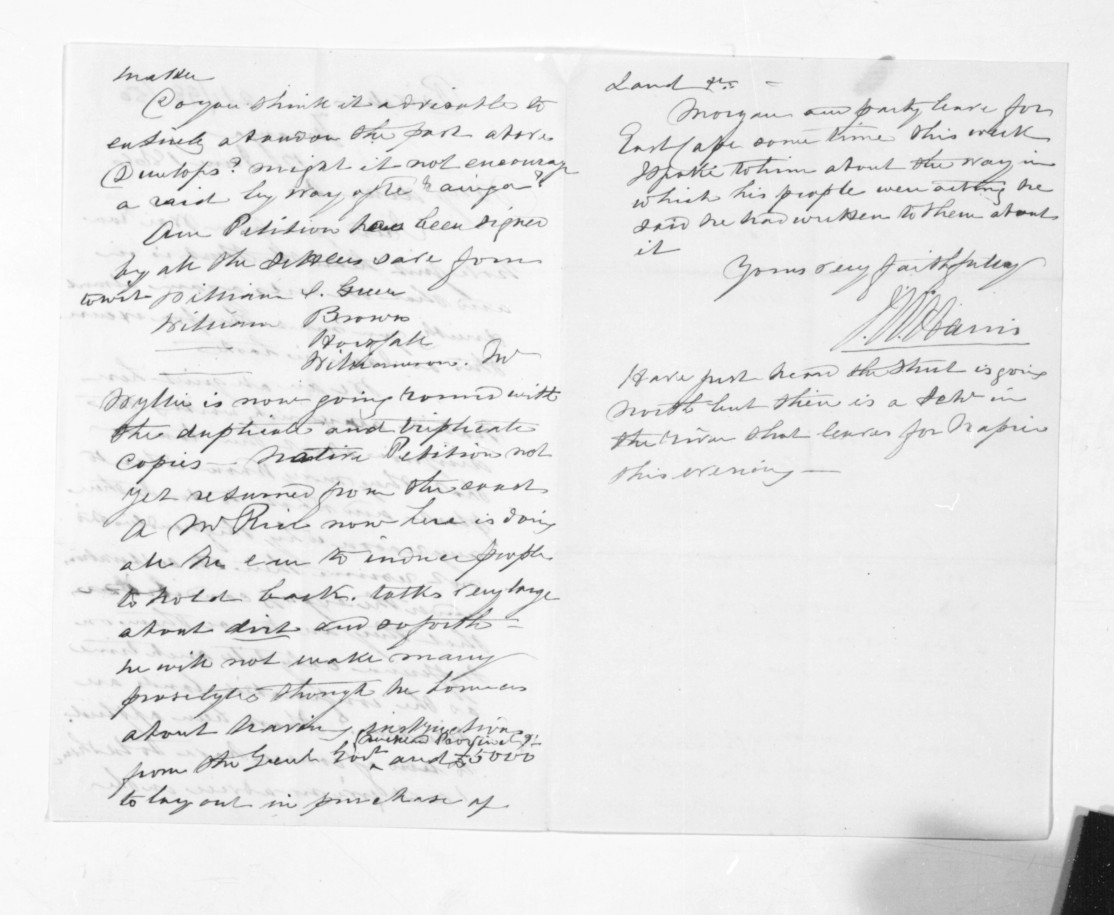 matter
Do you think it advisable to
entirely abandon the post above
Dunlops? might it not encourage
a raid by way of Te Rainga?
Our Petition has been signed
by all the settlers save four
to wit William S. Greene
William Brown
Horsfall
Williamson. Mr
Wyllie is now going round with
the duplicate and triplicate
copies — Native Petition not
yet returned from the coast
A Mr Rich now here is doing
all he can to induce people
to hold back. talks very large
about dirt and so forth —
he will not make many
proselytes though he
about having instructions
from the Genl Govt and £5000
to lay out in purchase of
Land &c —
Morgan and party leave for
East Cape some time this week
I spoke to him about the way in
which his people were acting he
said he had written to them about
it
Yours very faithfully
J. W. Harris
Have just heard the Sturt is going
North but there is a Schr in
the river that leaves for Napier
this evening —